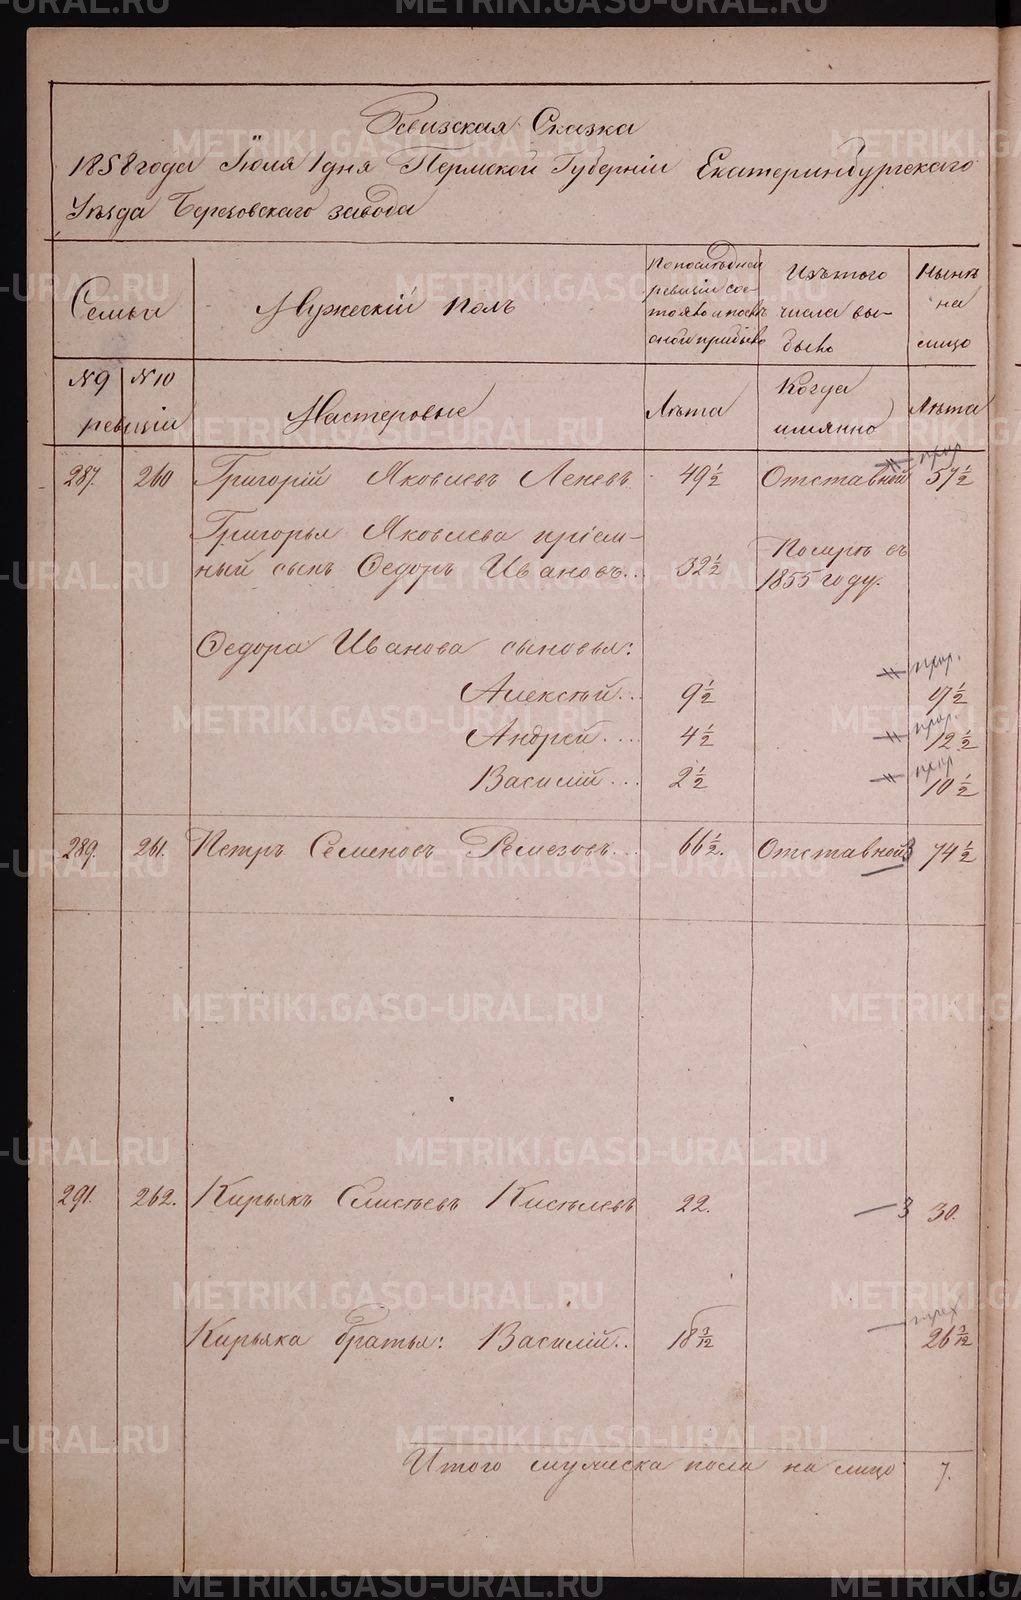 Ревизская Сказка
1858 года Июля 1 дня Пермской Губерніи Екатеринбургскаго
Уѣзда Березовскаго завода
Семьи
Мужескій полъ
По последней ревизіи состояло и после оной прибыло
Изъ того числа выбыло
Нынѣ на лицо
№ 9 № 10
ревизіи
Мастеровые
Лѣта
Когда имянно
Лѣта
287. 260 Григорій Яковлевъ 49 1/2 Отставной 57 1/2
Григорья Яковлева пріем-
ный сынъ Ѳедоръ Ивановъ... 32 1/2 Померъ въ
1855 году.
Ѳедора Иванова сыновья:
Алексѣй... 9 1/2 17 1/2
Андрей.... 4 1/2 12 1/2
Василій... 2 1/2 10 1/2
289. 261. Петръ Семеновъ Ремезовъ... 66 1/2. Отставной 3 74 1/2
291. 262. Кирьякъ Елисѣевъ Киселевъ 22. 3 30.
Кирьяка братья: Василій.. 18 3/12 26 3/12
Итого мужеска пола на лицо 7.
METRIKI.GASO-URAL.RU